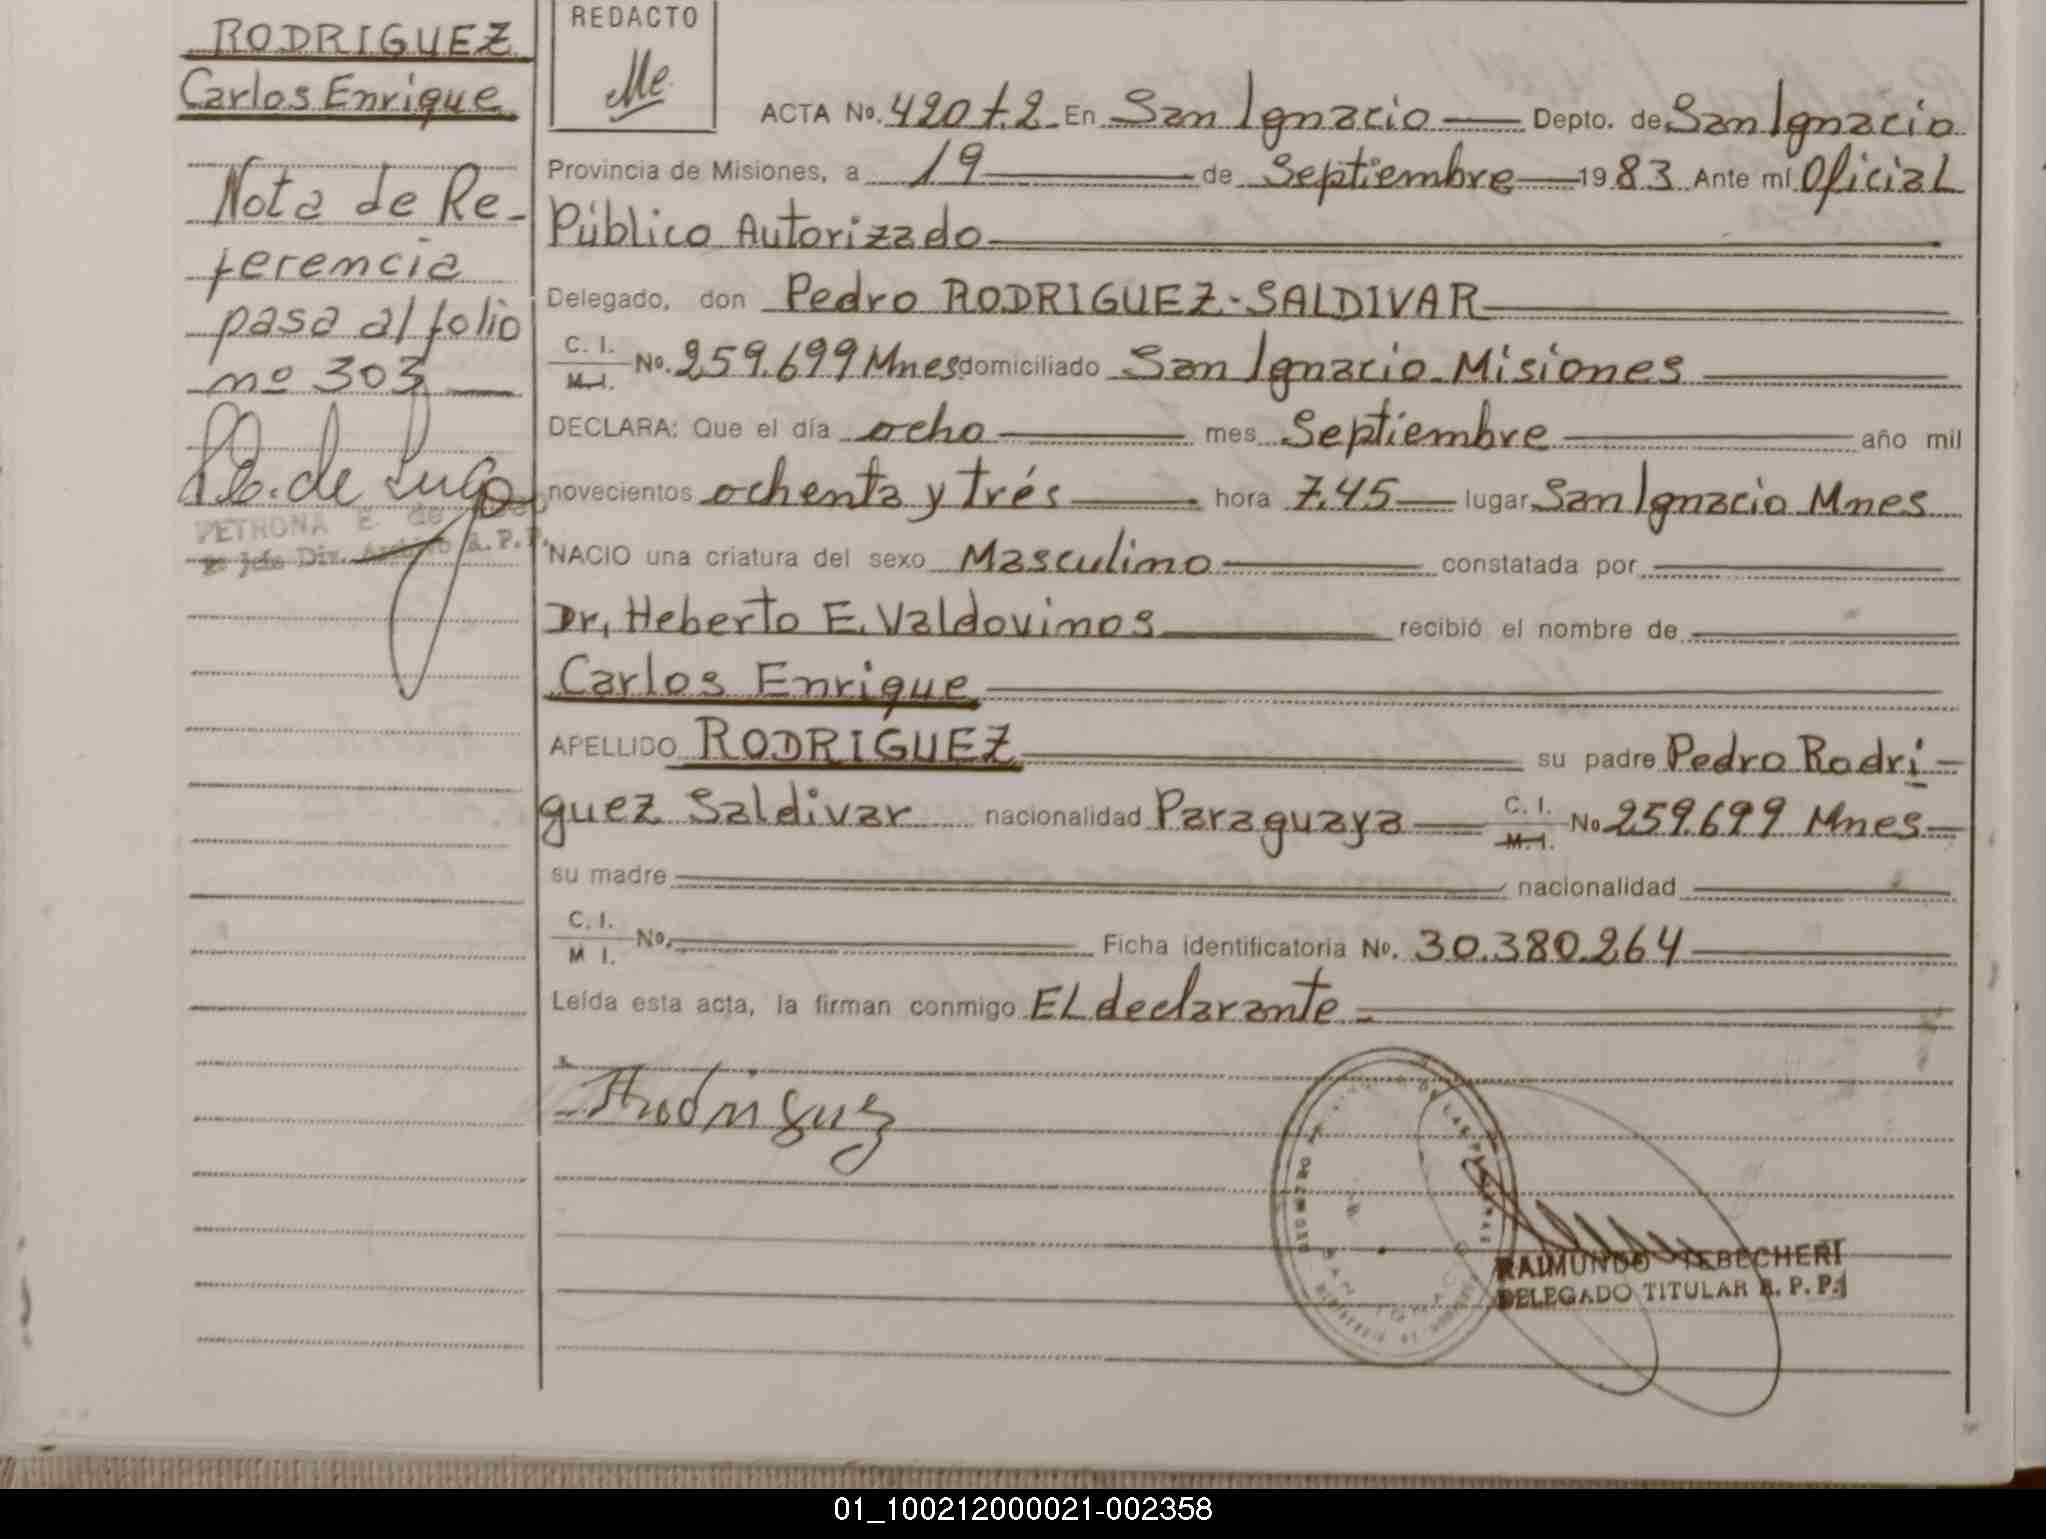 RODRIGUEZ
Carlos Enrique
Nota de Re-
ferencia
pasa al folio
nº 303
PETRONA E. de
REDACTO
ACTA No. 420 t.2 En San Ignacio Depto. de San Ignacio
Provincia de Misiones, a 19 de Septiembre 1983 Ante mí Oficial
Público Autorizado
Delegado, don Pedro RODRIGUEZ-SALDIVAR
C. I.
M.I. No. 259.699 Mnes domiciliado San Ignacio Misiones
DECLARA: Que el día ocho mes Septiembre año mil
novecientos ochenta y trés hora 7.45 lugar San Ignacio Mnes
NACIO una criatura del sexo Masculino constatada por
Dr, Heberto E. Valdovinos recibió el nombre de
Carlos Enrique
APELLIDO RODRIGUEZ su padre Pedro Rodri-
guez Saldivar nacionalidad Paraguaya C. I.
M.I. No 259.699 Mnes
su madre nacionalidad
C. I.
M I. No. Ficha identificatoria No. 30.380.264
Leída esta acta, la firman conmigo EL declarante
RAIMUNDO TEBECHERI
DELEGADO TITULAR R. P. P.
01_100212000021-002358